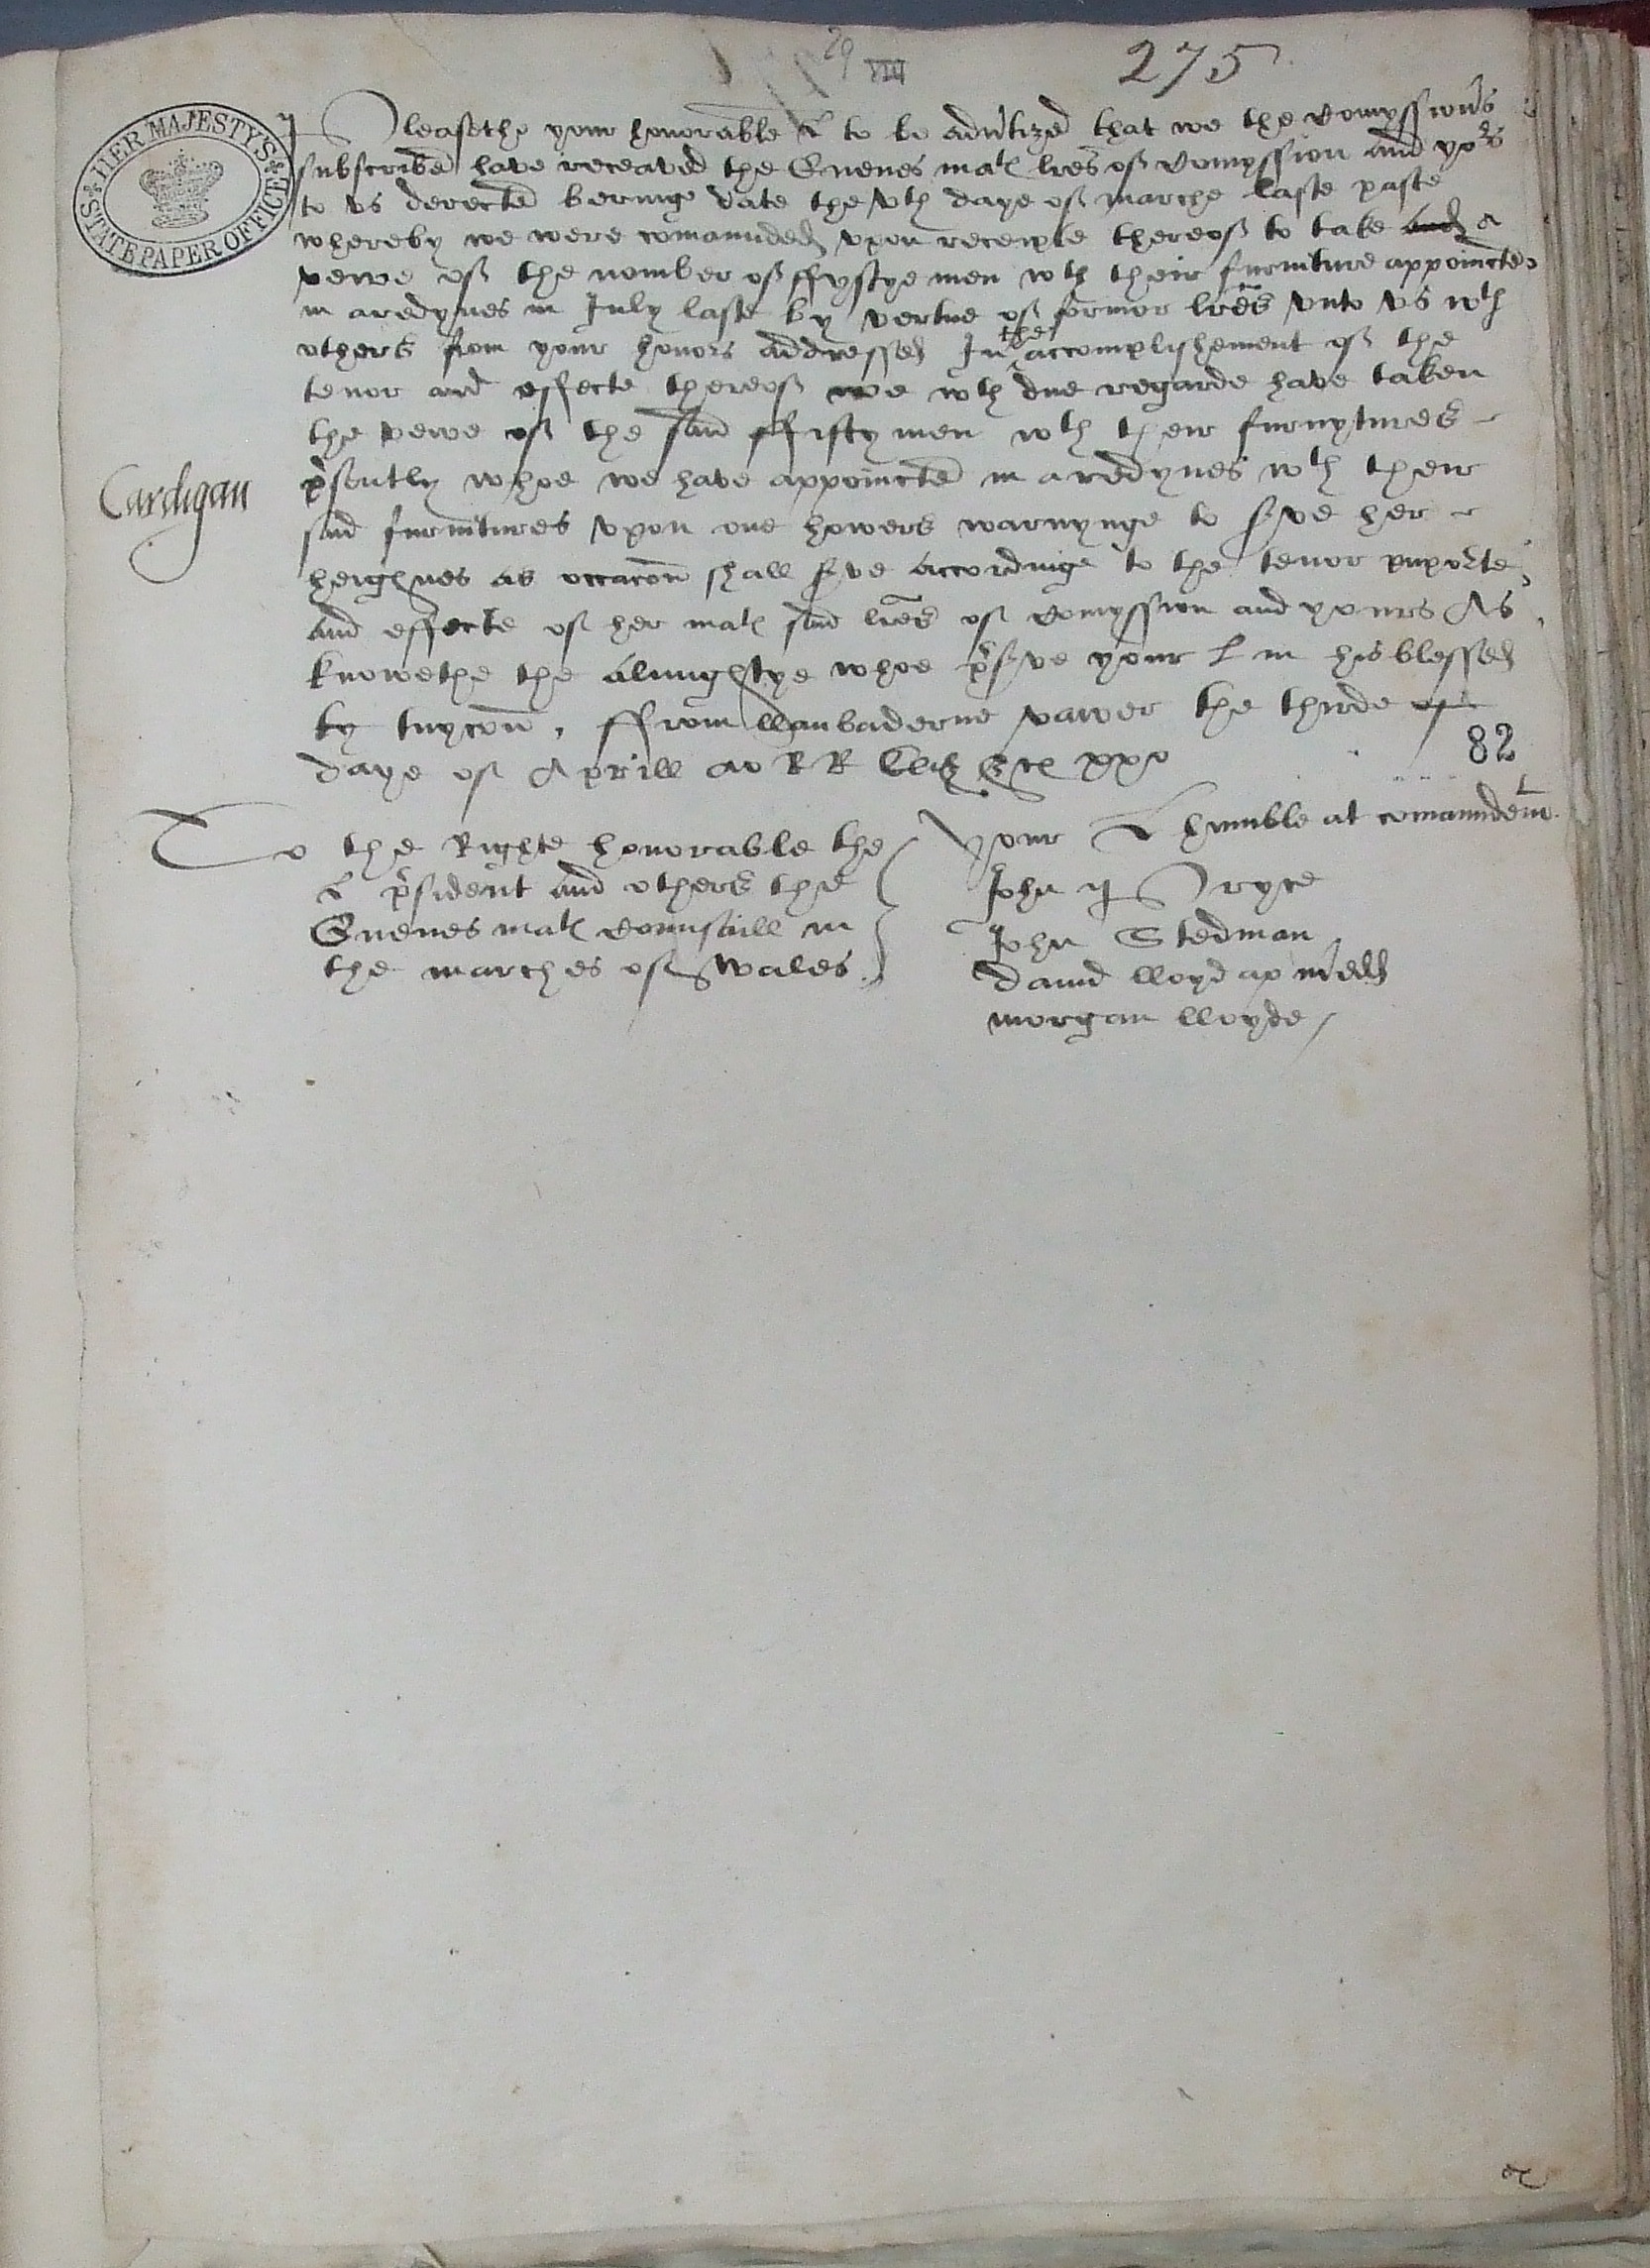 29 VIII
275
HER MAJESTY'S STATE PAPER OFFICE
Pleasethe your honorable L to be adu'tized that we the Comyssion's
subscribed have receaved the Quenes mates l'res of Comyssion and yors
to vs derected beringe date the vth daye of marche laste paste
whereby we were comaunded vpon receipte thereof to take and a
vewe of the nomber of ffyftye men wth their furniture appoincted
in aredynes in July laste by vertue of former l'res vnto vs wth
others from your honors addressed In the accomplishement of the
tenor and effecte thereof we wth due regarde have taken
the vewe of the said ffifty men wth their furnytures
Cardigan
p'sently whoe we have appoincted in aredynes wth their
said furnitures vpon one howers warnynge to s've her
heighnes as occac'on shall s've accordinge to the tenor purporte
and effecte of her mates said l'res of Comyssion and yours As
knowethe the almightye whoe p's've your L in his blessed
ty tuyc'on, ffrom llanbaderne vawer the thirde of
daye of Aprill ao RR Eliz &c xxo
82
To the Righte honorable the
L p'sident and others the
Quenes mates Counsaill in
the marches of Wales
Your L humble at comaundem't
John Pryce
John Stedman
Dauid lloyd ap
morgan lloyde